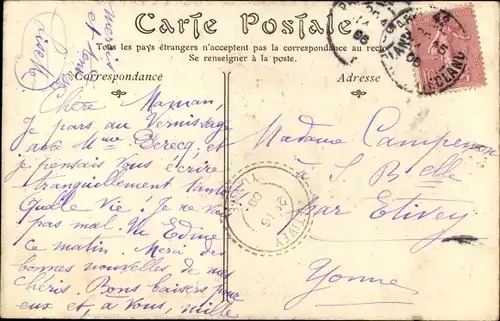 Carte Postale
Tous les pays étrangers n'acceptent pas la correspondance au recto
Se renseigner à la poste.
Correspondance
Adresse
Chère Maman,
Je pars au Vernissage
avec Mme Derecq, et
je pensais vous écrire
tranquillement tantôt
Quelle Vie! Je ne vais
pas mal. Vu Edine
ce matin. Merci des
bonnes nouvelles de nos
chéris. Bons baisers pour
eux et, à vous, mille
merci
et
Madame Campenon
à S. Belle
par Etivey
Yonne
ETIVEY
15
06